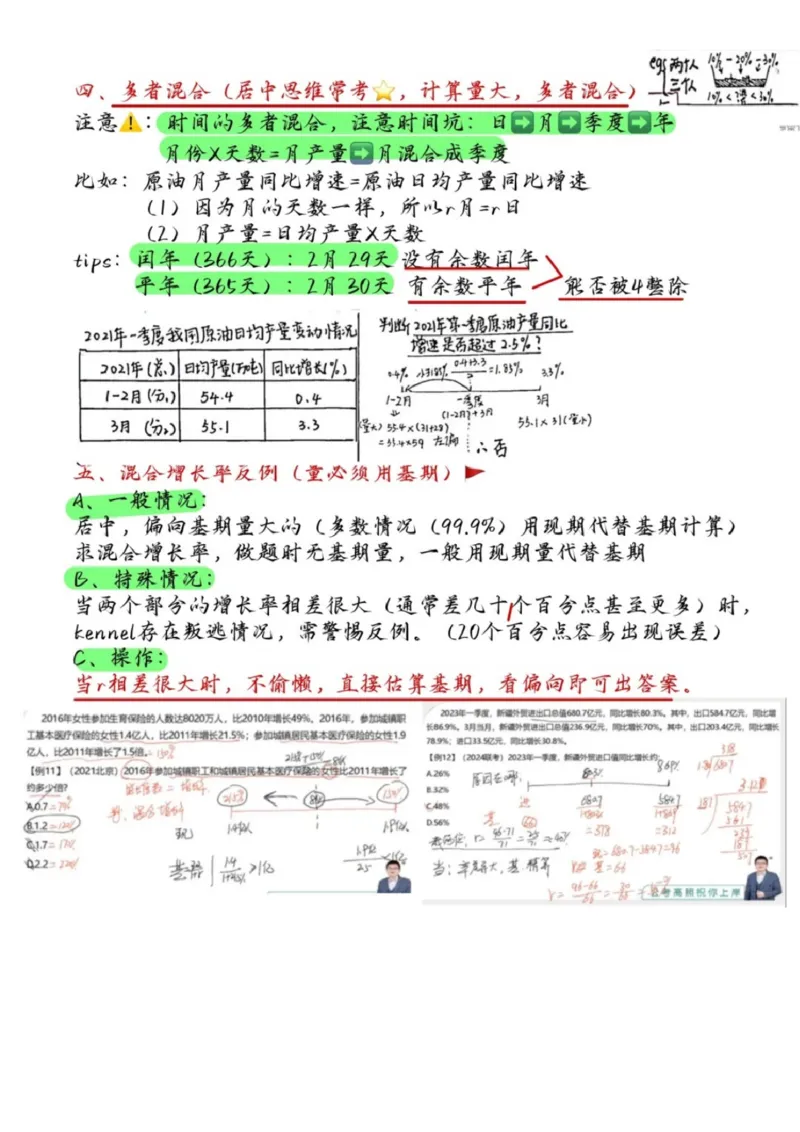 egs 两个人 10%-20%-30%
三个人 10%<混<30%
四、多者混合（居中思维常考⭐，计算量大，多者混合）
注意⚠️：时间的多者混合，注意时间坑：日➡️月➡️季度➡️年
月份X天数=月产量➡️月混合成季度
比如：原油月产量同比增速=原油日均产量同比增速
（1）因为月的天数一样，所以r月=r日
（2）月产量=日均产量X天数
tips：闰年（366天）：2月29天 没有余数闰年
平年（365天）：2月30天 有余数平年 能否被4整除
2021年一季度我国原油日均产量变动情况
2021年(总) 日均产量(万吨) 同比增长(%)
1-2月(分1) 54.4 0.4
3月(分2) 55.1 3.3
判断2021年第一季度原油产量同比
增速是否超过2.5%？
0.4% 0.4+3.3 =1.85% 3.3%
2
1-2月 一季度 3月
(1-2月)+3月
(量大) 55.4×(31+28) 55.1×31(量小)
=55.4×59 左偏 ∴否
五、混合增长率反例（重必须用基期）
A、一般情况：
居中，偏向基期量大的（多数情况（99.9%）用现期代替基期计算）
求混合增长率，做题时无基期量，一般用现期量代替基期
B、特殊情况：
当两个部分的增长率相差很大（通常差几十个百分点甚至更多）时，
kennel存在叛逃情况，需警惕反例。（20个百分点容易出现误差）
C、操作：
当r相差很大时，不偷懒，直接估算基期，看偏向即可出答案。
2016年女性参加生育保险的人数达8020万人，比2010年增长49%。2016年，参加城镇职
工基本医疗保险的女性1.4亿人，比2011年增长21.5%；参加城镇居民基本医疗保险的女性1.9
亿人，比2011年增长了1.5倍。=150%
【例11】（2021北京）2016年参加城镇职工和城镇居民基本医疗保险的女性比2011年增长了
约多少倍？
A.0.7=70%
B.1.2=120%
C.1.7=170%
D.2.2=220%
21.5% 86% 150%
现 1.4亿人 1.9亿人
2023年一季度，新疆外贸进出口总值680.7亿元，同比增长80.3%。其中，出口584.7亿元，同比增
长86.9%。3月当月，新疆外贸进出口总值236.9亿元，同比增长70%。其中，出口203.4亿元，同比增长
78.9%；进口33.5亿元，同比增长30.8%。
【例12】（2024联考）2023年一季度，新疆外贸进口值同比增长约：
A.26%
B.32%
C.48%
D.56%
80.3% 86.9%
680.7 584.7
=378 =312
现=680.7-584.7=96
基=66